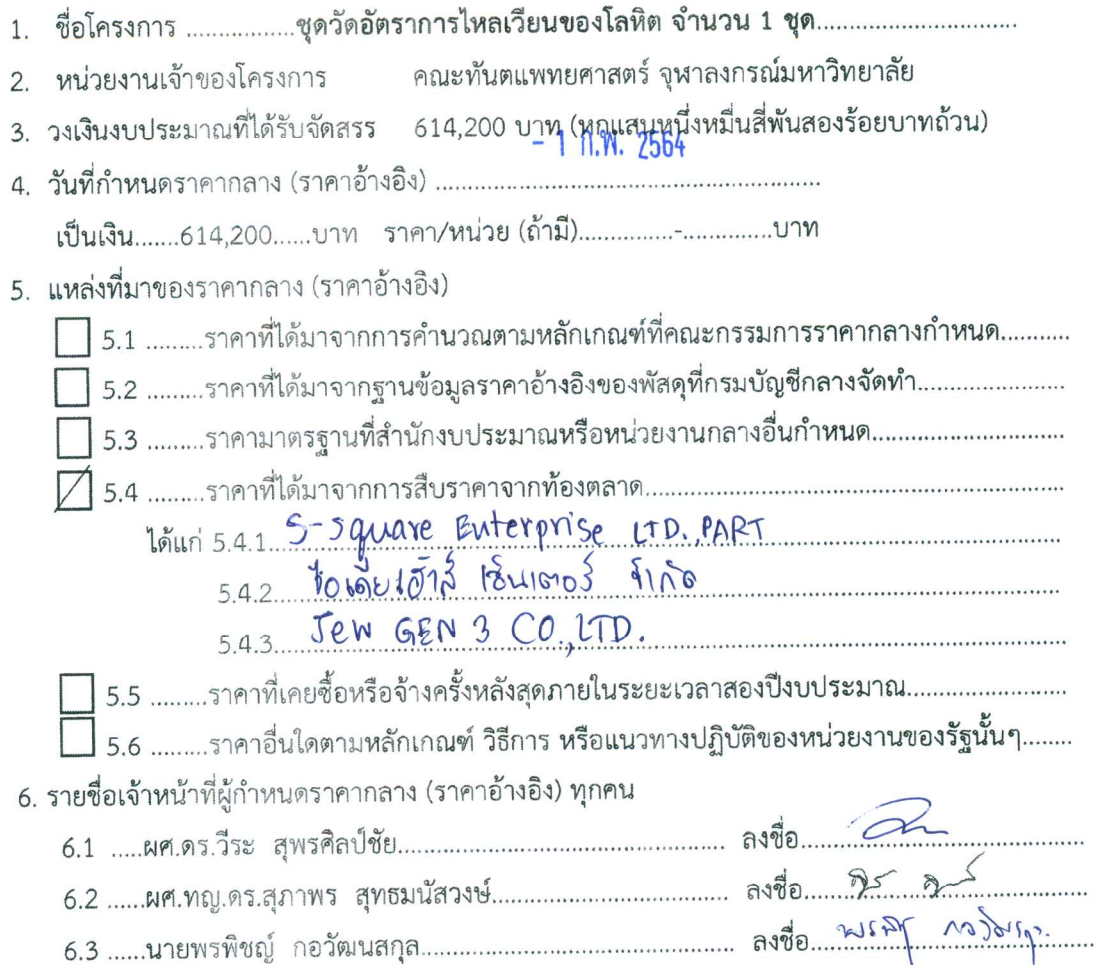 1. ชื่อโครงการ ................ชุดวัดอัตราการไหลเวียนของโลหิต จำนวน 1 ชุด..............................
2. หน่วยงานเจ้าของโครงการ คณะทันตแพทยศาสตร์ จุฬาลงกรณ์มหาวิทยาลัย
3. วงเงินงบประมาณที่ได้รับจัดสรร 614,200 บาท (หกแสนหนึ่งหมื่นสี่พันสองร้อยบาทถ้วน)
- 1 ก.พ. 2564
4. วันที่กำหนดราคากลาง (ราคาอ้างอิง) ..........................................................
เป็นเงิน.......614,200......บาท ราคา/หน่วย (ถ้ามี)..............-..............บาท
5. แหล่งที่มาของราคากลาง (ราคาอ้างอิง)
5.1 .........ราคาที่ได้มาจากการคำนวณตามหลักเกณฑ์ที่คณะกรรมการราคากลางกำหนด...........
5.2 .........ราคาที่ได้มาจากฐานข้อมูลราคาอ้างอิงของพัสดุที่กรมบัญชีกลางจัดทำ......................
5.3 .........ราคามาตรฐานที่สำนักงบประมาณหรือหน่วยงานกลางอื่นกำหนด.............................
5.4 .........ราคาที่ได้มาจากการสืบราคาจากท้องตลาด...............................................................
ได้แก่ 5.4.1 S-Square Enterprise LTD.,PART
5.4.2 เฮ้าส์ เซ็นเตอร์ จำกัด
5.4.3 Jew GEN 3 CO.,LTD.
5.5 .........ราคาที่เคยซื้อหรือจ้างครั้งหลังสุดภายในระยะเวลาสองปีงบประมาณ........................
5.6 .........ราคาอื่นใดตามหลักเกณฑ์ วิธีการ หรือแนวทางปฏิบัติของหน่วยงานของรัฐนั้นๆ........
6. รายชื่อเจ้าหน้าที่ผู้กำหนดราคากลาง (ราคาอ้างอิง) ทุกคน
6.1 .....ผศ.ดร.วีระ สุพรศิลป์ชัย.................................................. ลงชื่อ
6.2 ......ผศ.ทญ.ดร.สุภาพร สุทธมนัสวงษ์................................... ลงชื่อ
6.3 ......นายพรพิชญ์ กอวัฒนสกุล............................................... ลงชื่อ